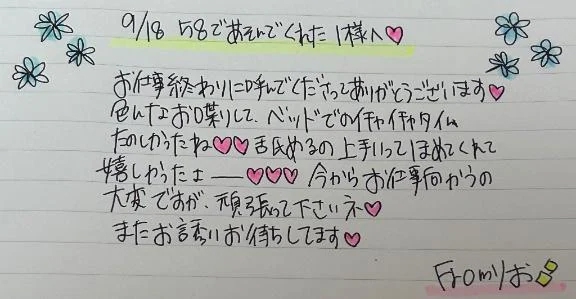 9/18 58であそんでくれた1様へ♡
お仕事終わりに呼んでくださってありがとうございます♡
色んなお喋りして、ベッドでのイチャイチャタイム
たのしかったね♡♡舌氏めるの上手いってほめてくれて
嬉しかったよー♡♡♡ 今からお仕事向かうの
大変ですが、頑張って下さいネ♡
またお誘いお待ちしてます♡
Fromりお